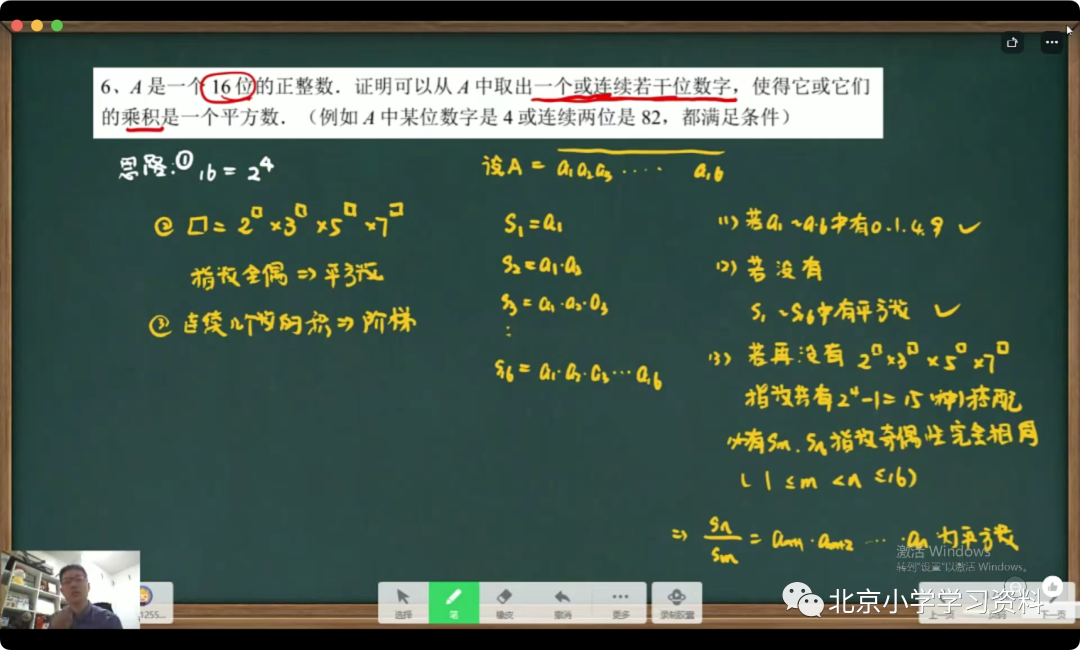 6、A 是一个 16 位的正整数．证明可以从 A 中取出一个或连续若干位数字，使得它或它们
的乘积是一个平方数．（例如 A 中某位数字是 4 或连续两位是 82，都满足条件）
思路:① 16 = 2^4
② □ = 2^□ × 3^□ × 5^□ × 7^□
指数全偶 ⇒ 平方数
③ 连续几个数的积 ⇒ 阶梯
设A = a₁a₂a₃ ····· a₁₆
S₁ = a₁
S₂ = a₁·a₂
S₃ = a₁·a₂·a₃
:
S₁₆ = a₁·a₂·a₃···a₁₆
(1) 若a₁~a₁₆中有0.1.4.9 ✓
(2) 若没有
S₁~S₁₆中有平方数 ✓
(3) 若再没有 2^□×3^□×5^□×7^□
指数共有2^4-1=15(种)搭配
必有Sm.Sn指数奇偶性完全相同
(1≤m<n≤16)
⇒ Sn/Sm = am+1·am+2 ··· ·an 为平方数
激活 Windows
转到"设置"以激活 Windows。
1255...
选择 笔 橡皮 撤消 更多 录制胶囊
北京小学学习资料
上一页 页码 下一页